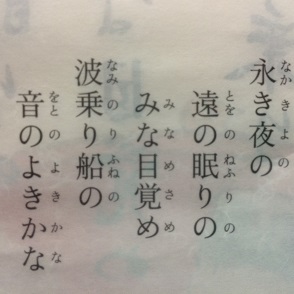 永き夜の
なかきよの
遠の眠りの
とをのねふりの
みな目覚め
みなめさめ
波乗り船の
なみのりふねの
音のよきかな
をとのよきかな